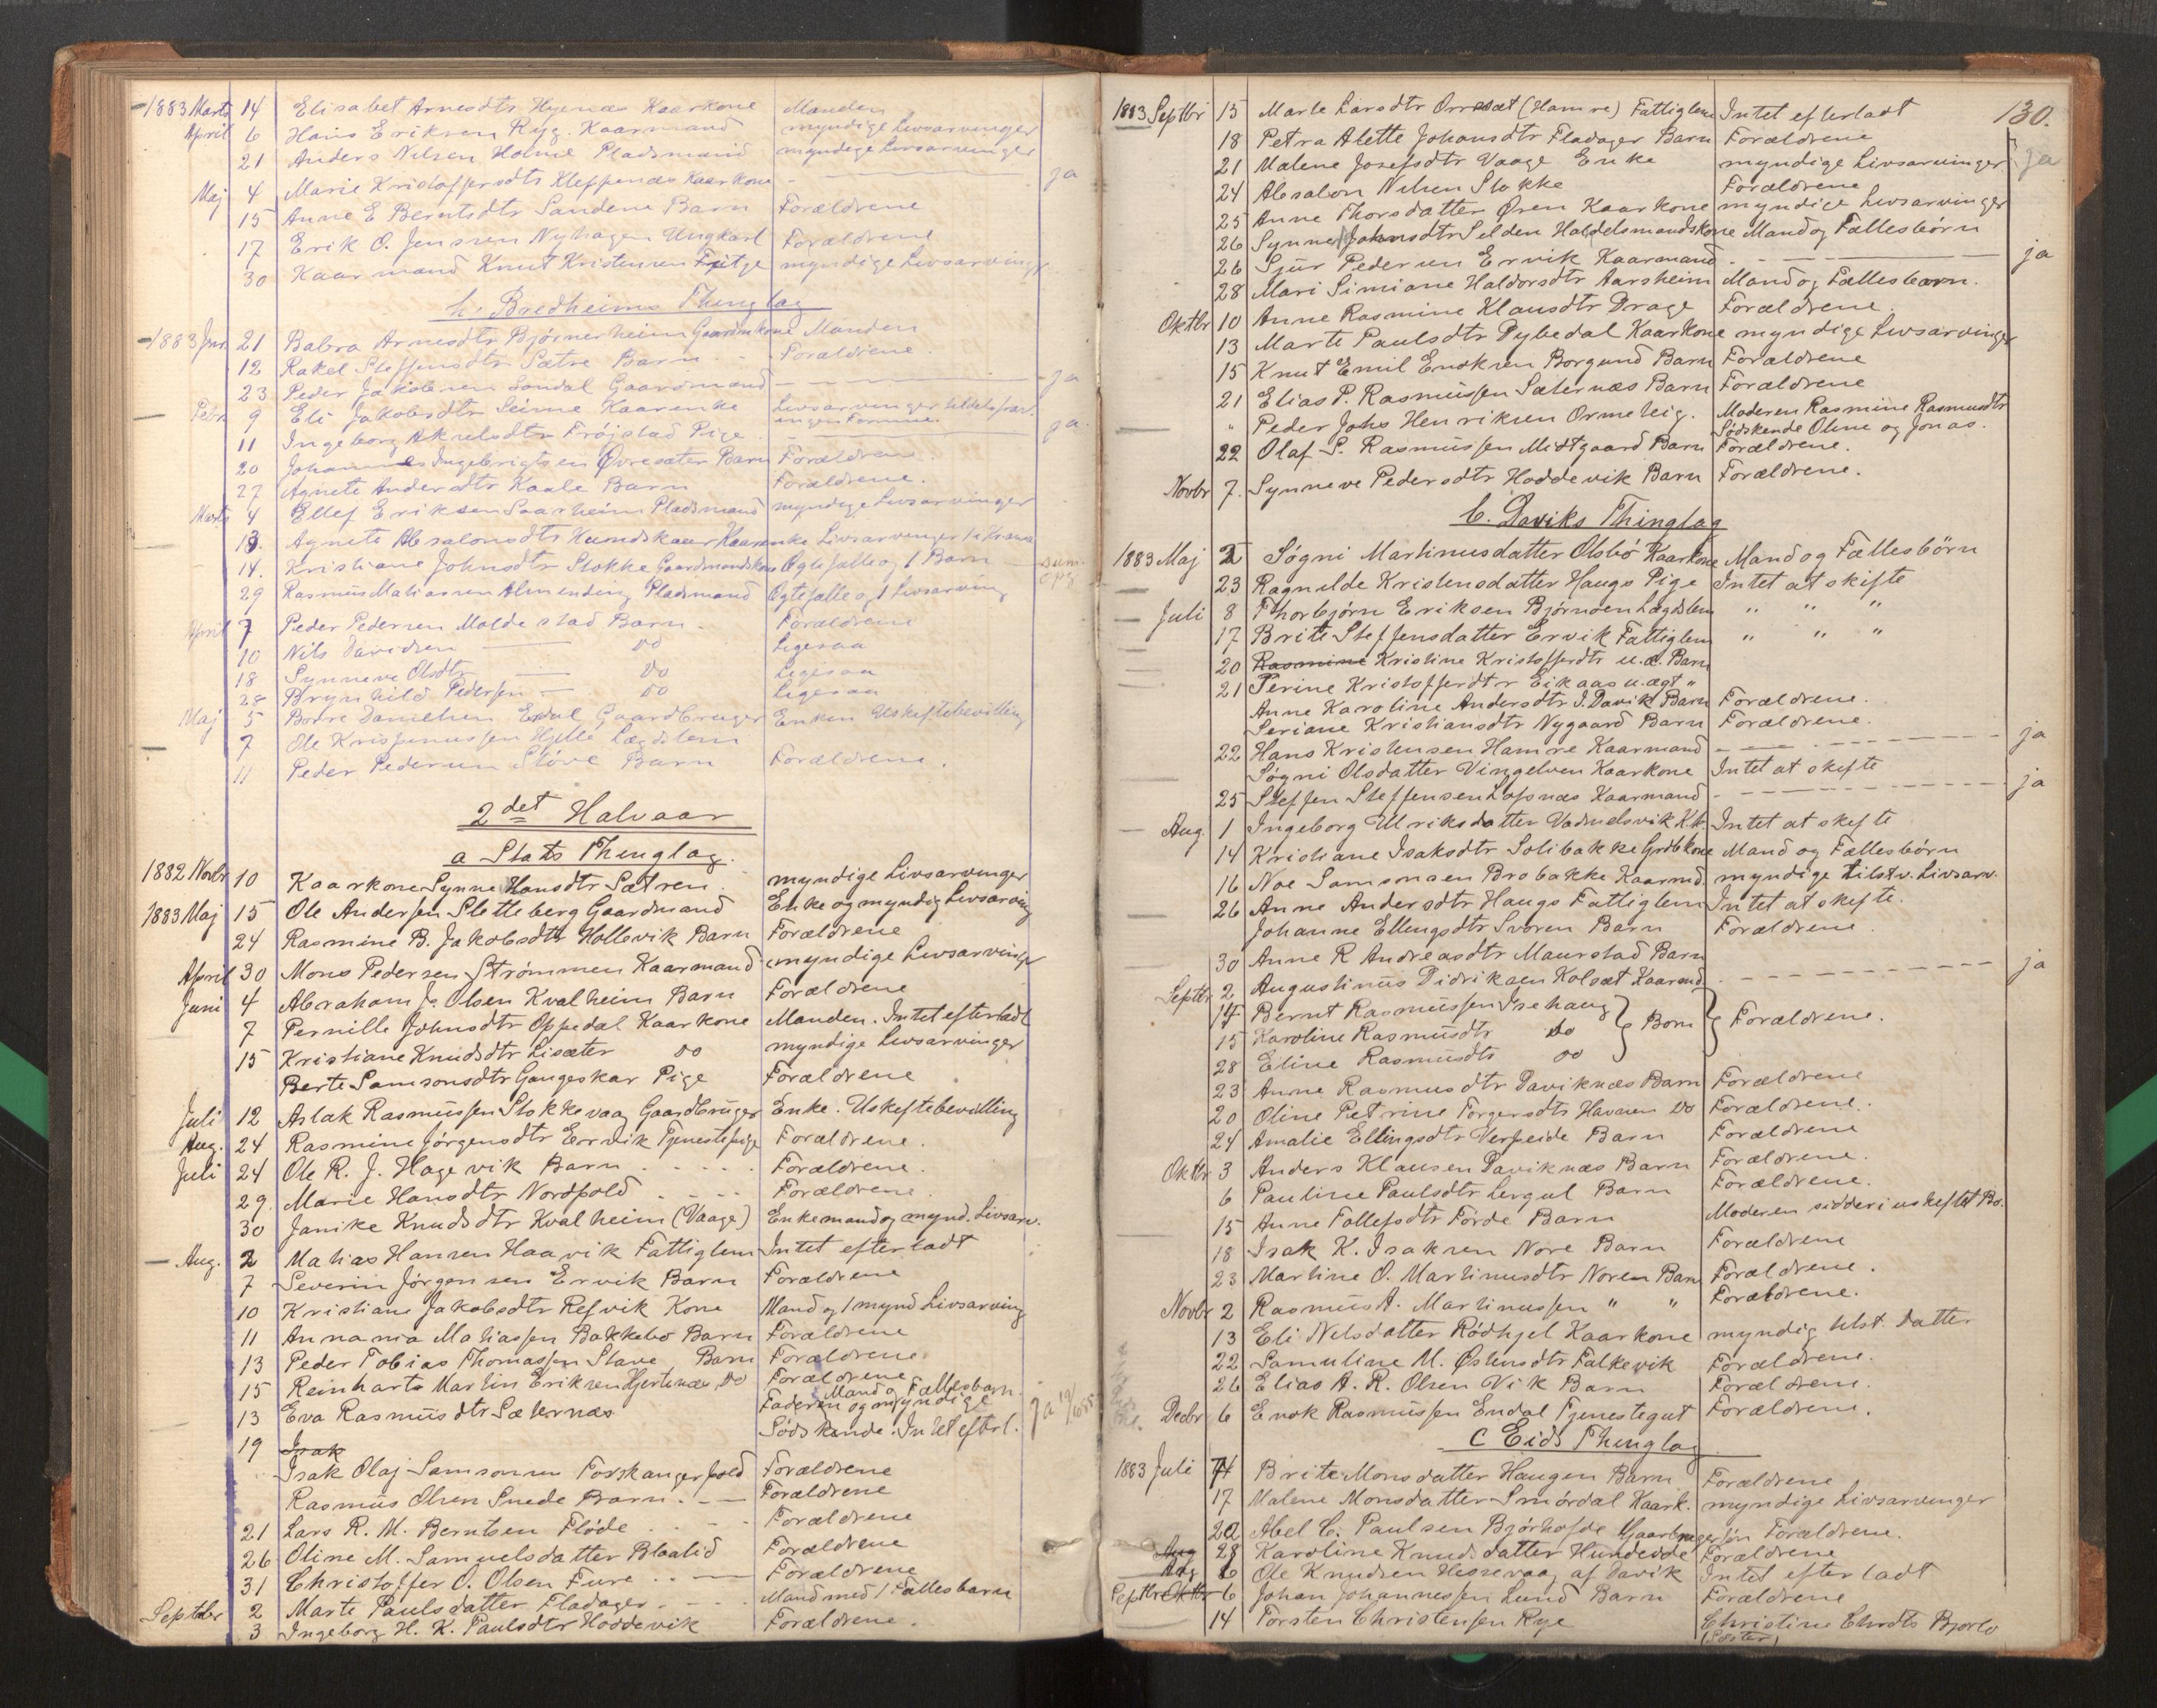 1883 Marts 14 Elisabet Arnesdtr Hyenæs Kaarkone Manden
April 6 Hans Eriksen Ryg. Kaarmand myndige Livsarvinger
21 Anders Nilsen Holme Pladsmand myndige Livsarvinger
Maj 4 Marie Kristoffersdtr Kleppenæs Kaarkone - ja
15 Anne E Berntsdtr Sandene Barn Forældrene
17 Erik O. Jenssen Nyhagen Ungkarl Forældrene
30 Kaarmand Knut Kristensen Fitje myndige Livsarving
h. Bredheims Thinglag
1883 Jnr. 21 Babra Arnesdtr Bjørnerheim Gaardmkone Manden
12 Rakel Steffensdtr Sætre Barn Forældrene
23 Peder Jakobsen Sandal Gaardmand - ja
Febr 9 Eli Jakobsdtr Seime Kaarenke Livsarvinger tildels frav.
ingen Formue.
11 Ingeborg Akselsdtr Frøjstad Pige - ja
20 Johannes Ingebrigtsen Øvresæter Barn Forældrene
27 Agnete Andersdtr Kaale Barn Forældrene.
Marts 4 Ellef Eriksen Saarheim Pladsmand myndige Livsarvinger
13. Agnete Absalonsdtr Hundskaar Kaarenke Livsarvinger
14. Kristiane Johnsdtr Stokke Gaardmandskone Ægtefælle og 1 Barn
29 Rasmus Mathiassen Almending Pladsmand Ægtefælle og 1 Livsarving
April 7 Peder Pedersen Maldestad Barn Forældrene
10 Nils Davidsen — do Ligesaa
18 Synneve Olsdtr — do Ligesaa
28 Brynhild Pedersen — do Ligesaa
Maj 5 Bodre Danielsen Endal Gaardbruger Enken Uskiftebevilling
7 Ole Krispinussen Hjelle Lægdslem
11 Peder Pedersen Støve Barn Forældrene.
2det Halvaar
a Stats Thinglag.
1882 Novbr 10 Kaarkone Synne Hansdtr Sætren. myndige Livsarvinger
1883 Maj 15 Ole Andersen Sletteberg Gaardmand Enke og myndig Livsarving
24 Rasmine B. Jakobsdtr Hollevik Barn Forældrene
April 30 Mons Pedersen Strømmen Kaarmand myndige Livsarvinger
Juni 4 Abraham J. Olsen Kvalheim Barn Forældrene
7 Pernille Johnsdtr Oppedal Kaarkone Manden. Intet efterladt
15 Kristiane Knudsdtr Lisæter do myndige Livsarvinger
Berte Samsonsdtr Gangeskar Pige Forældrene
Juli 12 Aslak Rasmussen Stokkevaag Gaardbruger Enke. Uskiftebevilling
Aug. 24 Rasmine Jørgensdtr Ervik Tjenestepige Forældrene.
Juli 24 Ole R. J. Hagevik Barn Forældrene.
29. Marie Hansdtr Nordpold Forældrene.
30 Janike Knudsdtr Kvalheim (Vaage) Enkemand og mynd. Livsarv.
Aug. 2 Mathias Hansen Haavik Fattiglem Intet efterladt
7 Severin Jørgensen Ervik Barn Forældrene
10 Kristiane Jakobsdtr Refvik Kone Mand og 1 mynd Livsarving
11 Annania Mathiassen Bakkebø Barn Forældrene
13 Peder Tobias Thomassen Stave Barn Forældrene
15 Reinharts Martin Eriksen Hjertenæs, do Forældrene
13 Eva Rasmusdtr Sæternæs Mand og Fællesbarn. Faderen og myndige ja
19 Isak Sødskende. Intet efterl.
Isak Olaj Samsonsen Forskangerpold Forældrene
Rasmus Olsen Snede Barn. Forældrene
21 Lars R. M. Berntsen Fløde Forældrene
26 Oline M. Samuelsdatter Blaalid Forældrene
31 Christoffer O. Olsen Fure Forældrene
Septbr 2 Marte Paulsdatter Fladager Mand med 1 Fællesbarn
3 Ingeborg H. K. Paulsdtr Hoddevik Forældrene.
130.
1883 Septbr 15 Marte Larsdtr Orresæt (Hamre) Fattiglem Intet efterladt
18 Petra Alette Johansdtr Fladager Barn Forældrene
21 Malene Josefsdtr Vaage Enke myndige Livsarvinger. ja
24 Absalon Nilsen Stokke Forældrene
25 Anne Thorsdatter Øren Kaarkone myndige Livsarvinger
26 Synne Johnsdtr Selden Handelsmandskone Mand og Fællesbørn
26 Sjur Pedersen Ervik Kaarmand - ja
28 Mari Simiane Haldorsdtr Aarsheim Mand og Fællesbørn.
Oktbr 10 Anne Rasmine Klausdtr Drage Forældrene.
13 Marte Paulsdtr Dybedal Kaarkone myndige Livsarvinger
15 Knut Emil Enoksen Borgund Barn Forældrene
21 Elias P. Rasmussen Sæternæs Barn Forældrene
" Peder Johs Henriksen Ormeheig. Moderen Rasmine Rasmusdtr
Sødskende Oline og Jonas.
22 Olaf S. Rasmussen Midtgaard Barn Forældrene.
Novbr 7. Synneve Pedersdtr Hoddevik Barn Forældrene.
b. Daviks Thinglag
1883 Maj 2 Søgni Martinusdatter Olsbø Kaarkone Mand og Fællesbörn
23 Ragnilde Kristensdatter Haugs Pige Intet at skifte
Juli 8 Thorbjørn Eriksen Bjørnøen Lægdslem " " "
17 Brite Steffensdatter Ervik Fattiglem " " "
20 Rasmine Kristine Kristoffersdtr u.æ. Barn
21 Perine Kristoffersdtr Eikaas u.ægt "
Anne Karoline Andersdtr I. Davik Barn Forældrene.
Seriane Kristiansdtr Nygaard Barn Forældrene.
22 Hans Kristensen Hamre Kaarmand - ja
Søgni Olsdatter Vingelven Kaarkone Intet at skifte
25 Steffen Steffensen Lofsnæs Kaarmand - ja
Aug. 1 Ingeborg Ulriksdatter Vadmelsvik K.k. Intet at skifte
14 Kristiane Isaksdtr Solibakke Grdbkone Mand og Fællesbörn
16 Noe Samsonsen Brobakke Kaarmd. myndige tilstv. Livsarv.
26 Anne Andersdtr Haugs Fattiglem Intet at skifte.
Johanne Ellingsdtr Svoren Barn Forældrene.
30 Anne R Andreasdtr Maurstad Barn
Septbr 2 Augustinus Didriksen Kolset Kaarmd - ja
14 Bernt Rasmussen Isehaug
15 Karoline Rasmusdtr do } Børn } Forældrene.
28 Eline Rasmusdtr do
23 Anne Rasmusdtr Daviknæs Barn Forældrene
20 Oline Petrine Torgersdtr Havnen do Forældrene.
24 Amalie Ellingsdtr Verpeide Barn Forældrene
Oktbr 3 Anders Klausen Daviknæs Barn Forældrene.
6 Pauline Paulsdtr Lergul Barn Forældrene.
15 Anne Tollefsdtr Förde Barn Moderen sidder i uskiftet Bo.
18 Isak K. Isaksen Nore Barn Forældrene
23 Martine O. Martinusdtr Noren Barn Forældrene.
Novbr 2 Rasmus A. Martinussen " " Forældrene.
13 Eli Nilsdatter Rödhjel Kaarkone myndig tilst. Datter
22 Samuline M. Østensdtr Falkevik Forældrene.
26 Elias A. R. Olsen Vik Barn Forældrene.
Decbr 6 Enok Rasmussen Endal Tjenestegut Forældrene.
C Eids Thinglag
1883 Juli 7 Brite Monsdatter Haugen Barn Forældrene
17 Malene Monsdatter Smørdal Kaark. myndige Livsarvinger
22 Abel C. Paulsen Bjørhofde Gaardbrugersøn Forældrene.
Aug 28 Karoline Knudsdatter Hundeide Forældrene
Aug 6 Ole Knudsen Hessevaag af Davik Intet efterladt
Septbr Oktbr 6 Johan Johannessen Lund Barn Forældrene
14 Torsten Christensen Rye Christine Chrdtr Bjorlo
(Søster)